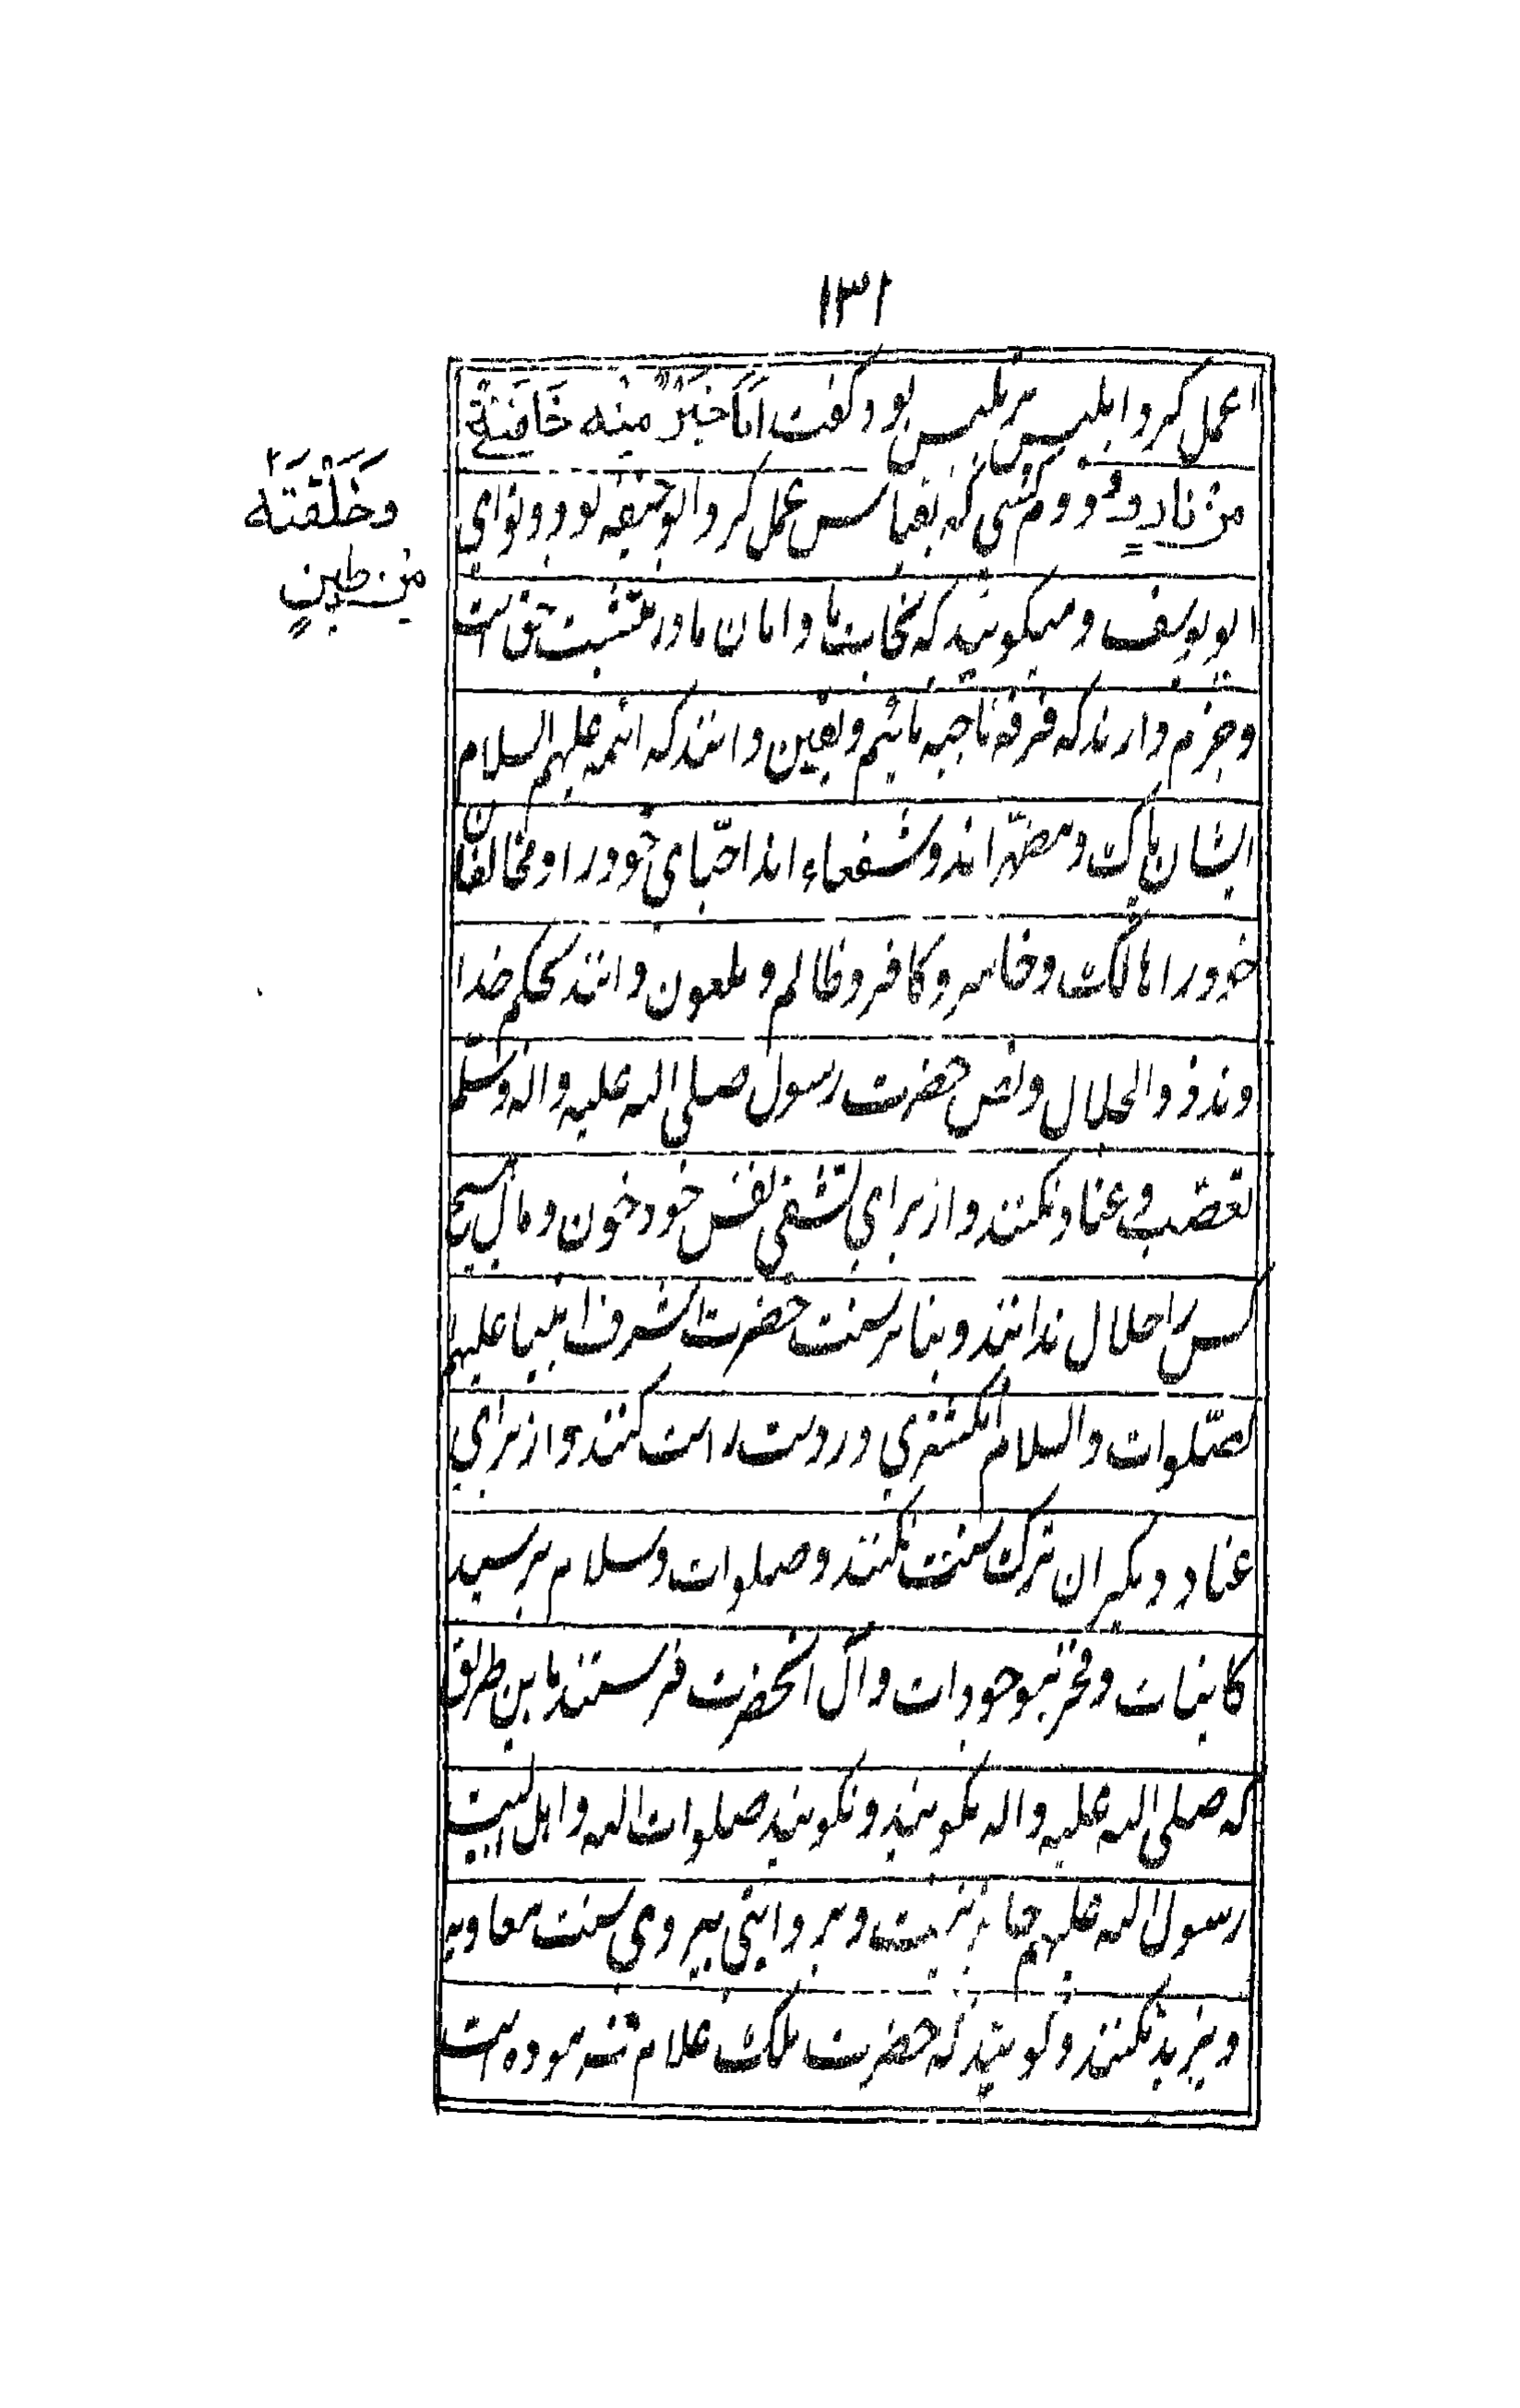 ۱۳۱
عمل کرد ابلیس پر تلبیس بود گفت اَنَا خَیْرٌ مِنْه خَلَقْتَنِی
مِنْ نَارٍ و دوم کسی که بقیاس عمل کرد ابوحنیفه بود و
وَخَلَقْتَه
مِن طینٍ
ابو یوسف و میگویند که نجات ما و امامان ما در حق است
و جزم دارند که فرقه ناجیه مائیم و یقین دانند که ائمه علیهم السلام
ایشان پاک و مطهّراند و شفعاء اند احبّای خود را و مخالفان
خود را هالک و خاسر و کافر و ظالم و ملعون دانند بحکم خدا
وند ذو الجلال و نص حضرت رسول صلی الله علیه و اله وسلم
تعصّب و عناد نکنند و از برای تشفی نفس خود خون و مال هیچ
کس را حلال ندانند و بنابر سنت حضرت اشرف انبیا علیهم
الصّلوات والسلام انکشتری در دست راست کنند و از برای
عناد دیگران ترک سنت نکنند و صلوات و سلام بر سید
کاینات و فخر موجودات و آل آنحضرت فرستند باین طریق
که صلی الله علیه و اله بگویند و نگویند صلوات الله و اهل البیت
رسول الله علیهم جایز نیست و بر پیروی سنت معاویه
و یزید نکنند و گویند که حضرت ملک علام فرموده است